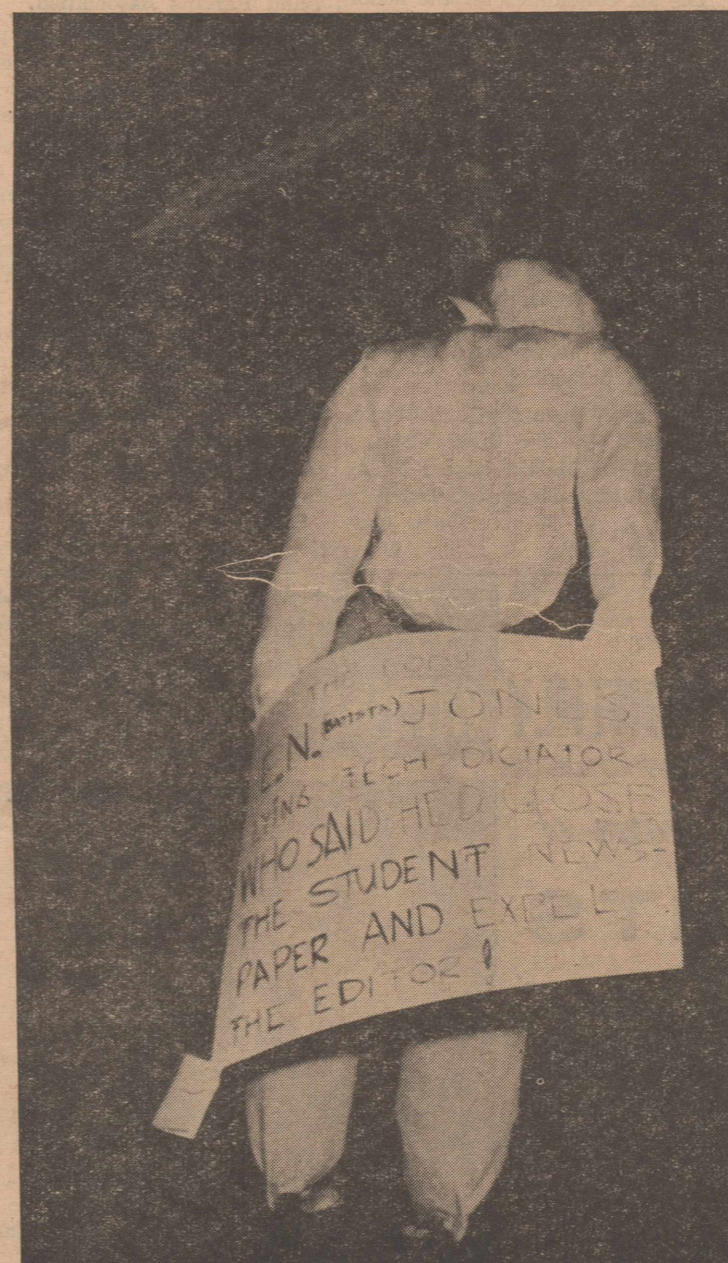 THE
E.N. (BATISTA) JONES
TECH DICTATOR
WHO SAID HE'D CLOSE
THE STUDENT NEWS-
PAPER AND EXPEL
THE EDITOR!